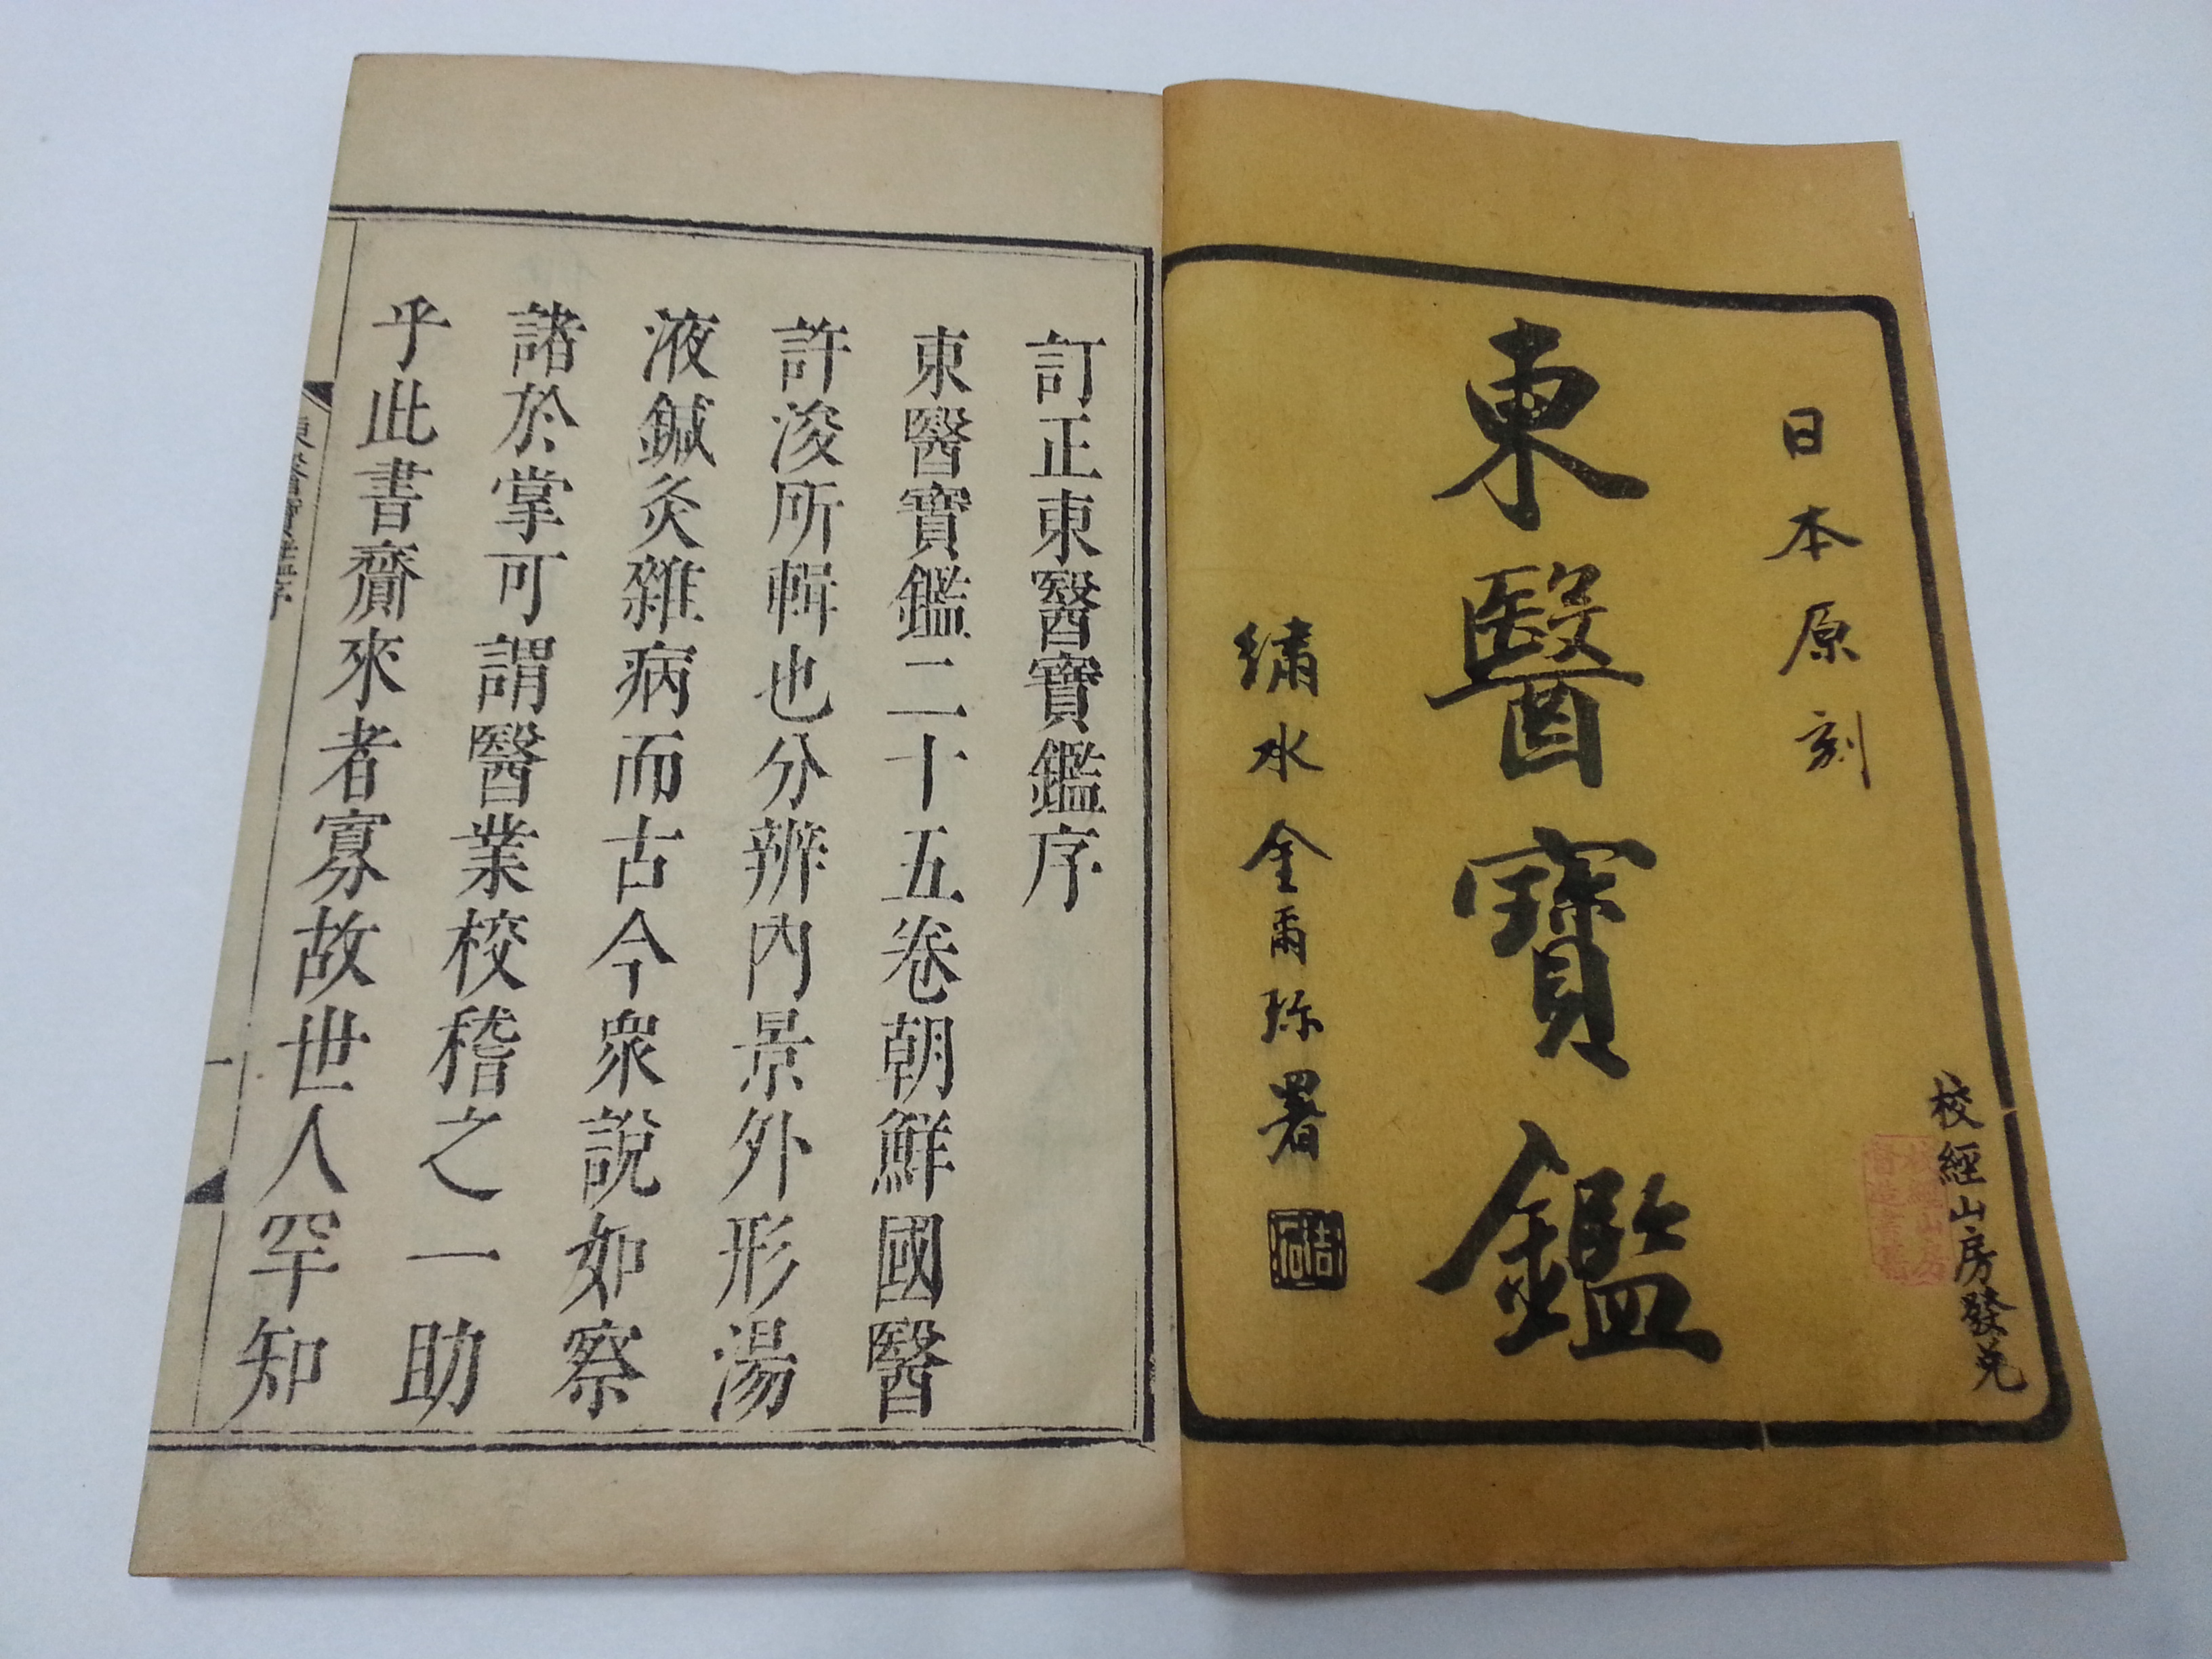 日本原刻
校經山房發兌
東醫寶鑑
繡水金爾珍署
訂正東醫寶鑑序
東醫寶鑑二十五卷朝鮮國醫
許浚所輯也分辨內景外形湯
液鍼灸雜病而古今衆說如察
諸於掌可謂醫業校稽之一助
乎此書齎來者寡故世人罕知
東醫寶鑑序
一